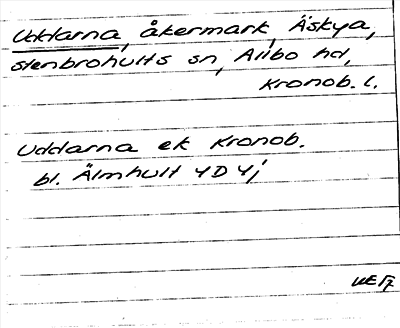 Uddarna, åkermark, Äskya,
Stenbrohults sn, Allbo hd,
Kronob. l.
Uddarna ek Kronob.
bl. Älmhult 4D 4j